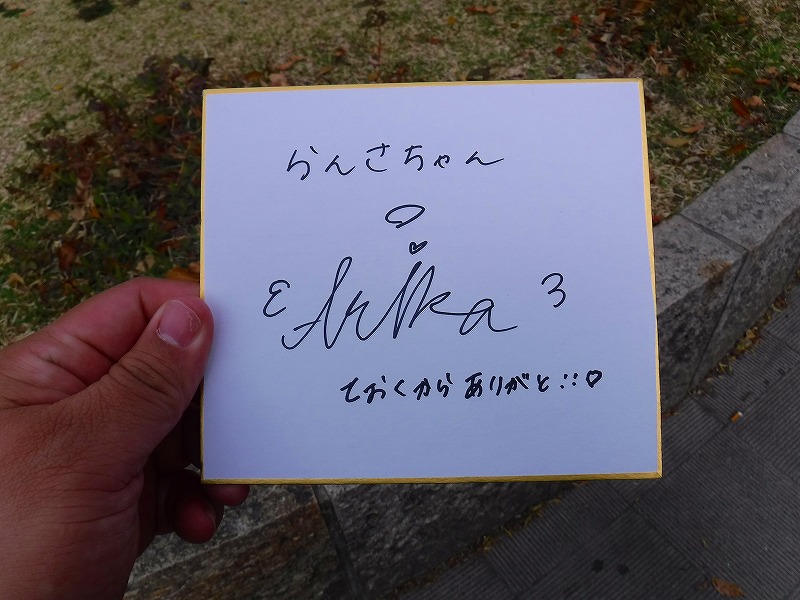 らんさちゃん
Arika
とおくからありがと::♡